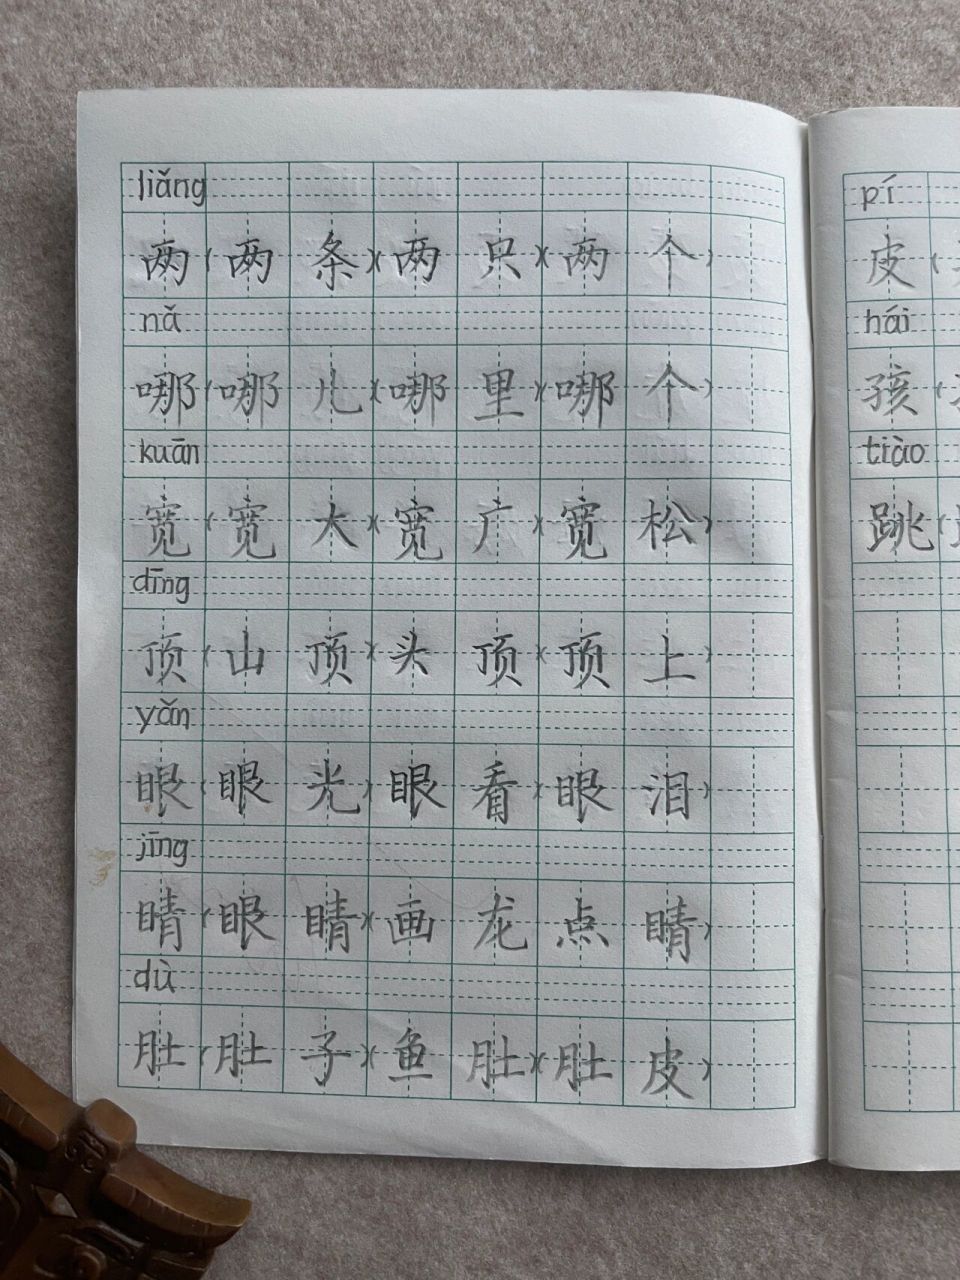 liǎng
两(两条)(两只)(两个)
nǎ
哪(哪儿)(哪里)(哪个)
kuān
宽(宽大)(宽广)(宽松)
dǐng
顶(山顶)(头顶)(顶上)
yǎn
眼(眼光)(眼看)(眼泪)
jīng
睛(眼睛)(画龙点睛)
dù
肚(肚子)(鱼肚)(肚皮)
pí
皮(
hái
孩(
tiào
跳(